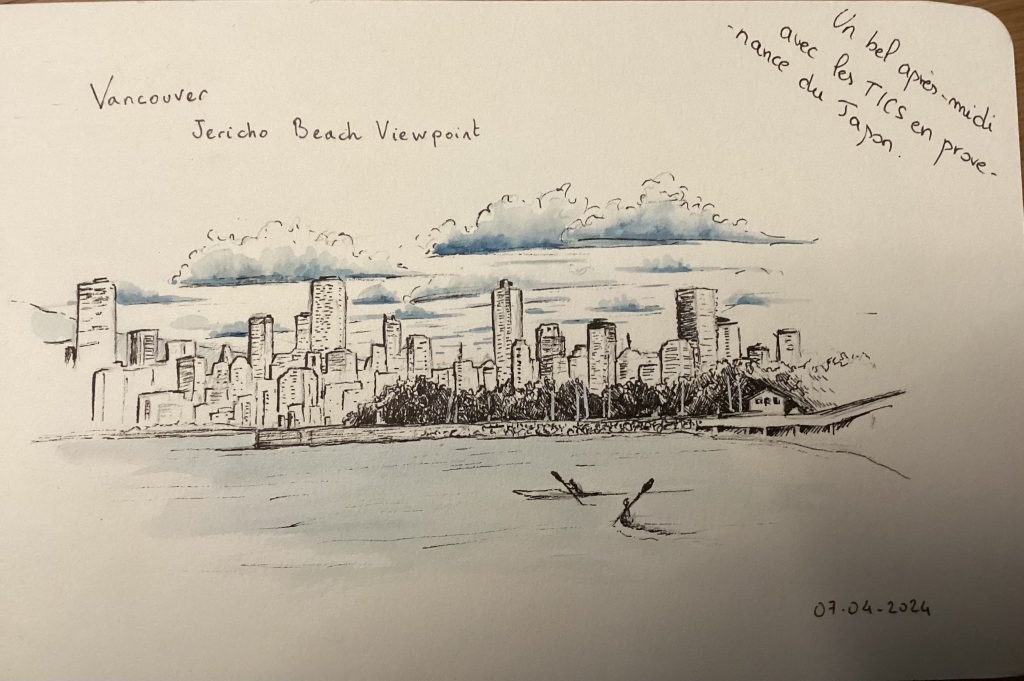 Vancouver
Jericho Beach Viewpoint
Un bel après-midi
avec les TICS en prove-
-nance du Japon.
07-04-2024